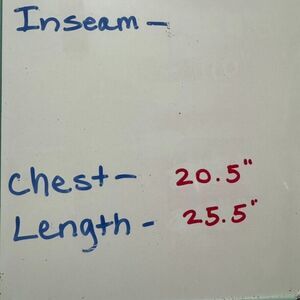 Inseam -
Chest - 20.5"
Length - 25.5"